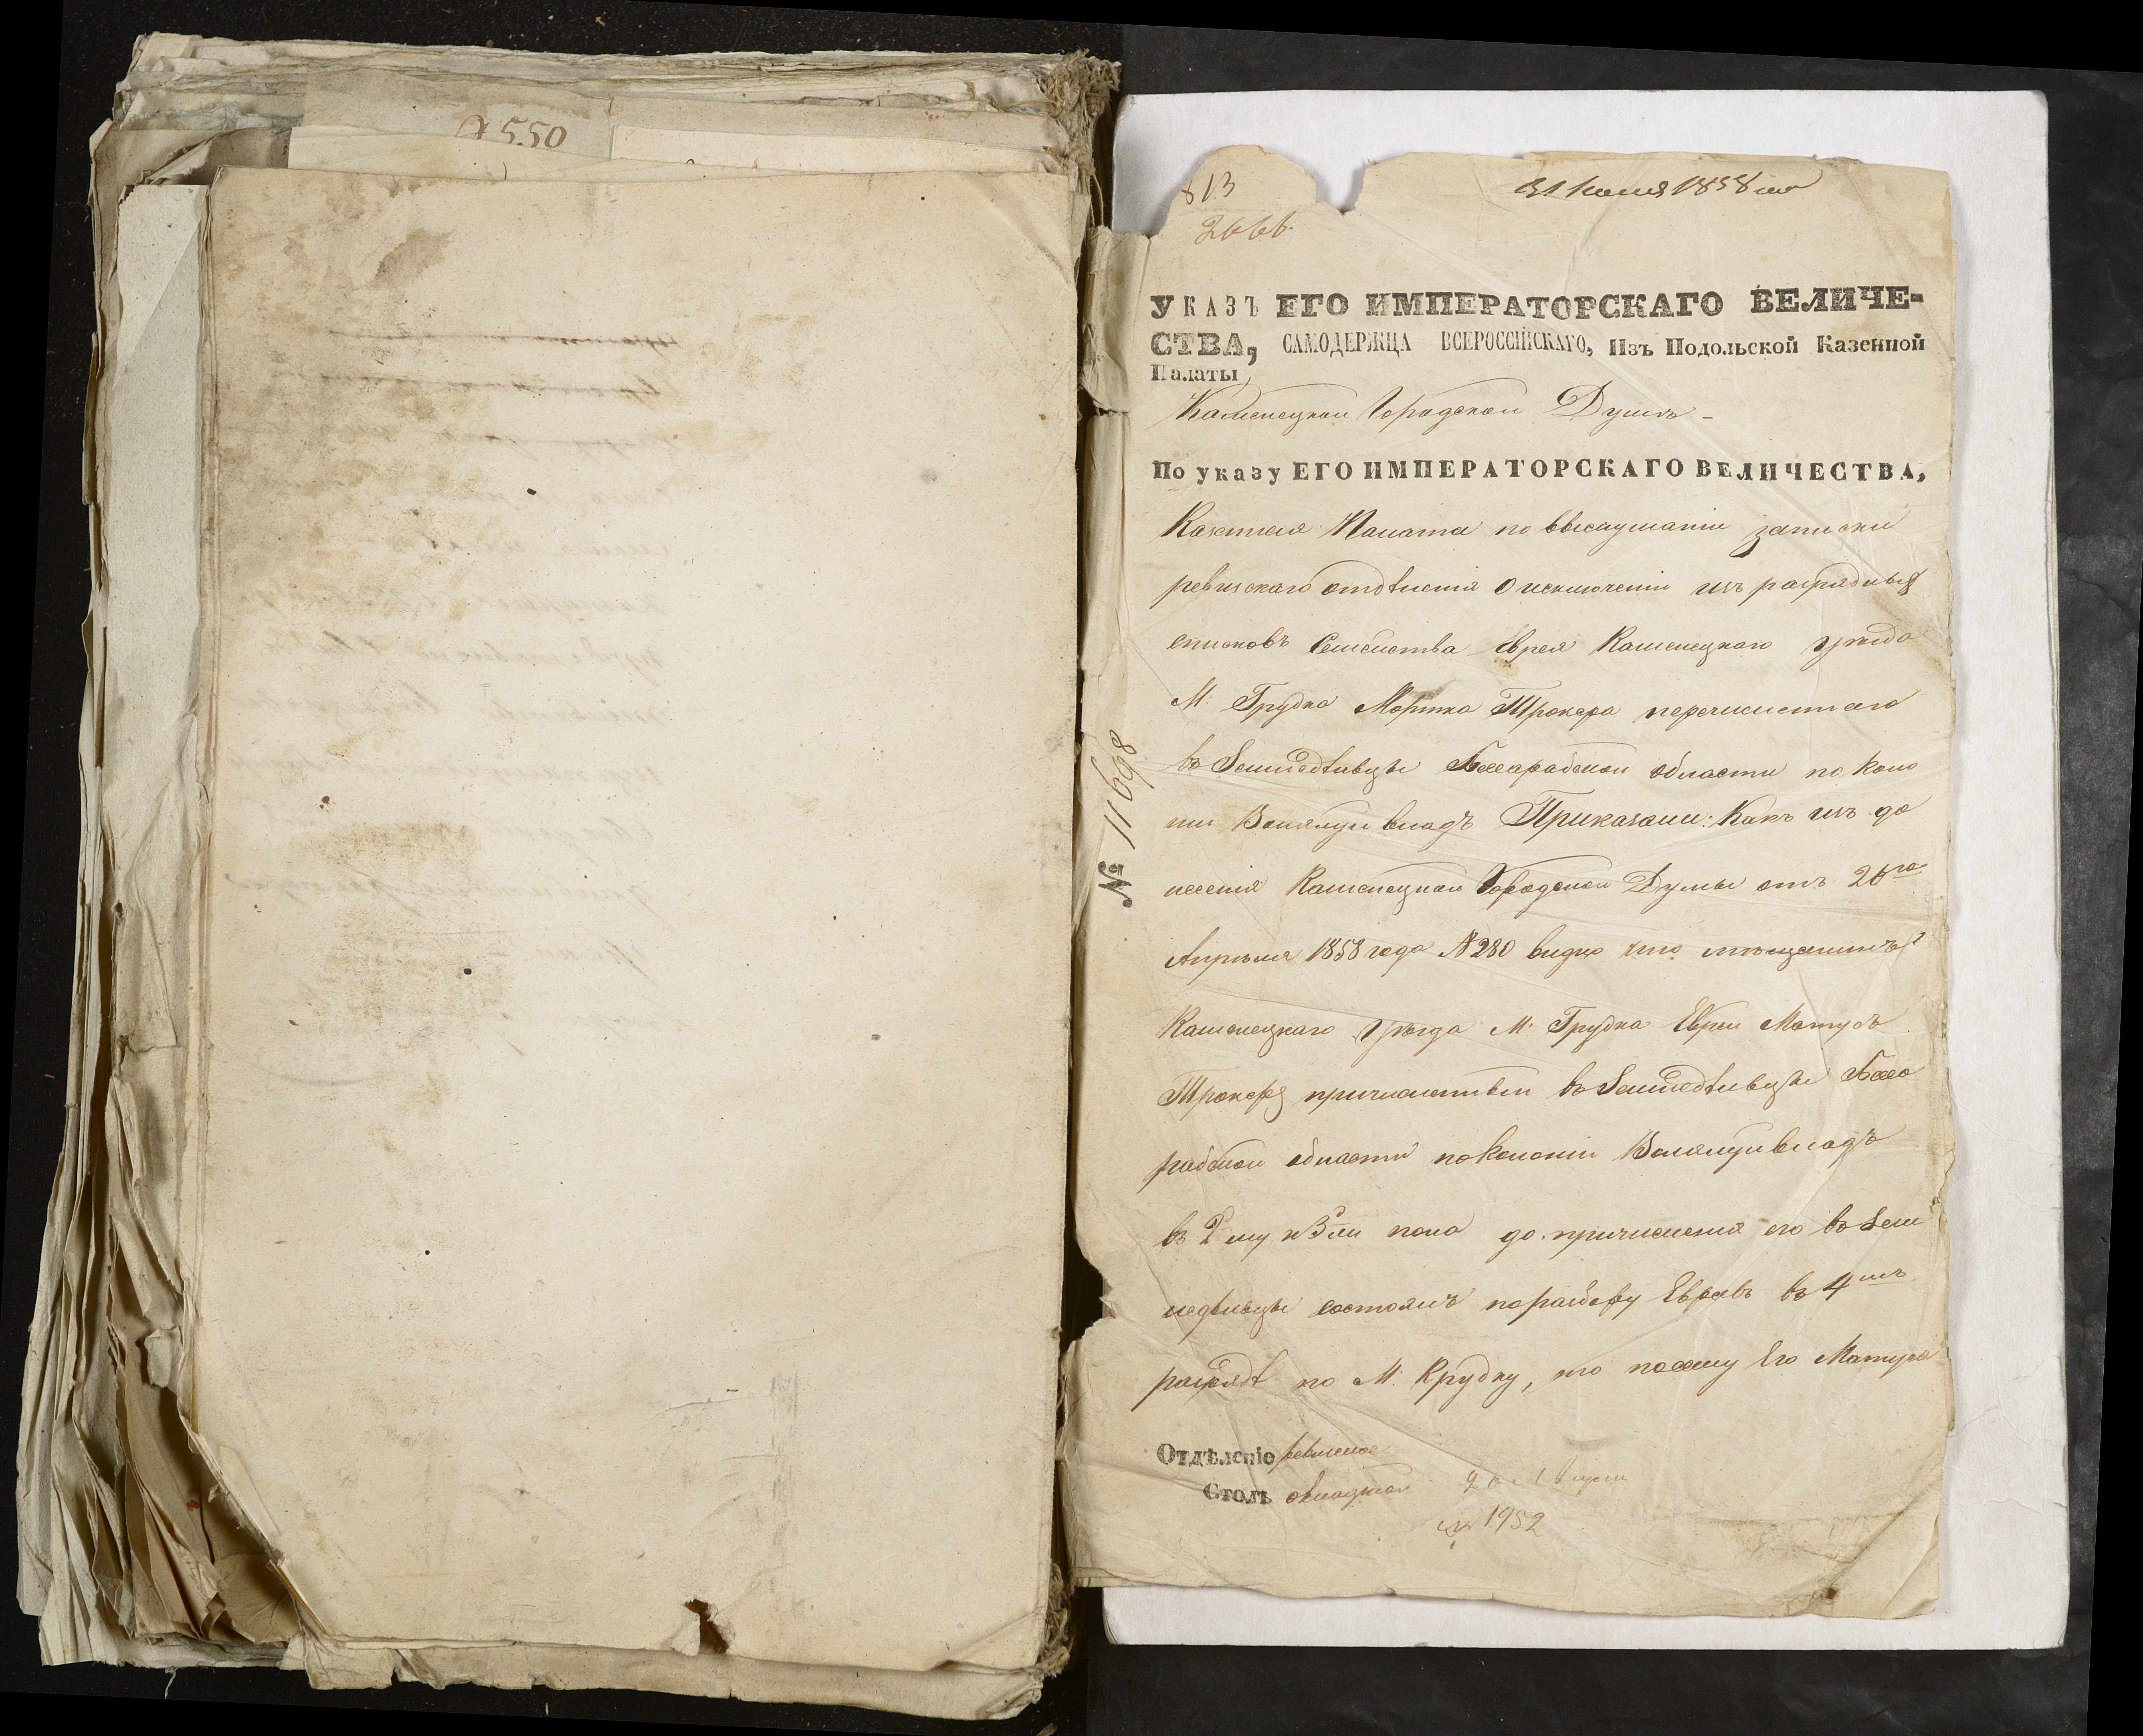 550
813
31 Июля 1858 года
2666.
УКАЗЪ ЕГО ИМПЕРАТОРСКАГО ВЕЛИЧЕ-
СТВА, САМОДЕРЖЦА ВСЕРОССІЙСКАГО, Изъ Подольской Казенной
Палаты,
Каменецкой Городской Думѣ -
По указу ЕГО ИМПЕРАТОРСКАГО ВЕЛИЧЕСТВА,
Казенная Палата по выслушаніи записки
ревизскаго отдѣленія о исключеніи изъ разрядныхъ
списковъ семейства Еврея Каменецкаго уѣзда
М. Грудка Шрокера перечисленнаго
въ Земледѣльцы Бессарабской области по коло
ніи Валялуйвладъ Приказали: Какъ изъ до
несенія Каменецкой Городской Думы отъ 26го
Апрѣля 1858 года №280 видно что мѣщанинъ
Каменецкаго уѣзда М. Грудка Еврей Матусъ
Шрокеръ причисленъ въ Земледѣльцы Бесса
рабской области по колоніи Валялуйвладъ
въ 2 му и 3 жен пола до причисленія его въ Зем
ледѣльцы состоялъ по разбору Евреевъ въ 4мъ
разрядѣ по М. Крудку, то посему его Матуса
№ 11698
Отдѣленіе ревизское
Столъ
1952